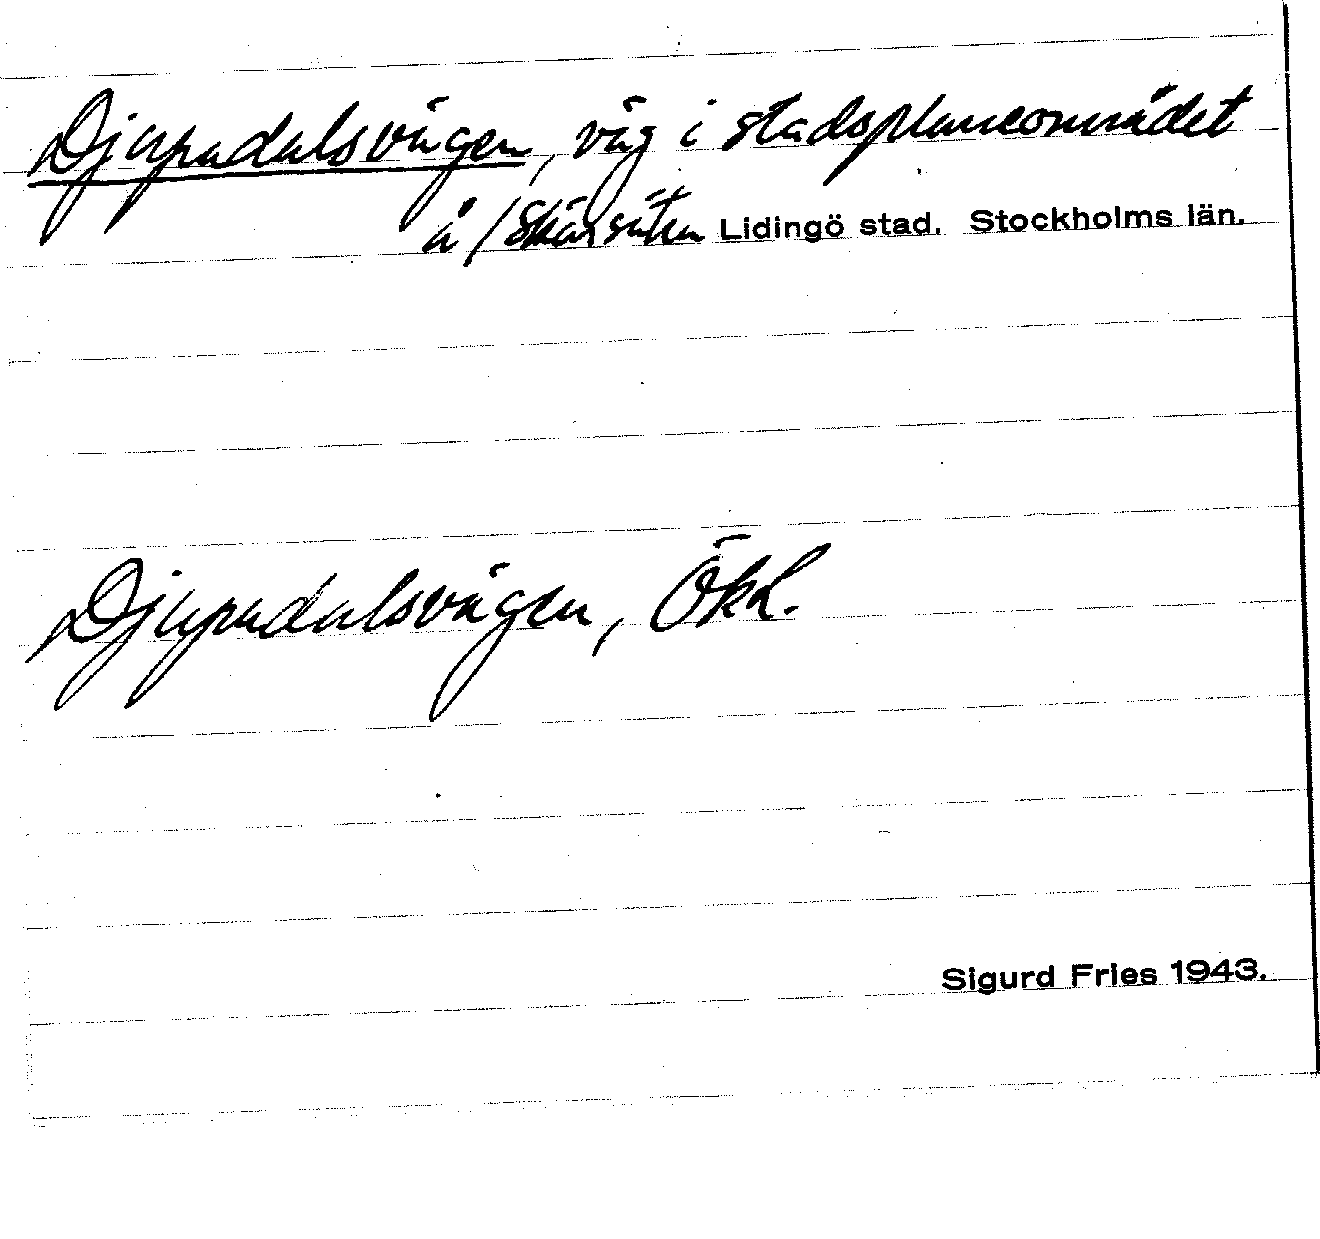 Djupadalsvägen, väg i stadsplaneområdet
å /Skärsätra Lidingö stad. Stockholms län.
Djupadalsvägen, Ökl.
Sigurd Fries 1943.